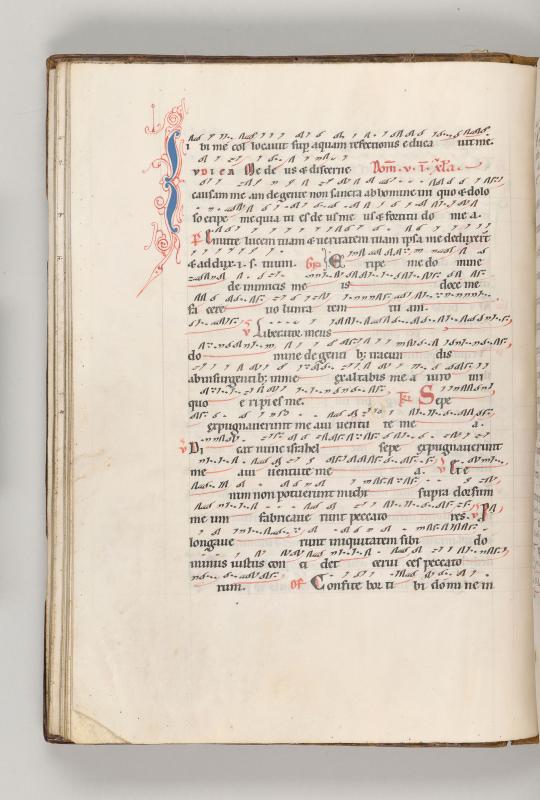 bi me col locavit sup aquam refectionis educa vit me.
VDICA Me de us & discerne Dom. v. i. xla.
causam me am de gente non sancta ab homine ini quo & dolo
so eripe me quia tu es de us me us & fortitu do me a.
Emitte lucem tuam & veritatem tuam ipsa me deduxerūt
& addux. i. s. tuum. Eripe me do mine
de inimicis me is doce me
fa cere vo lunta tem tu am.
v Liberator meus
do mine de genti b; iracun dis
ab insurgenti b; in me exaltabis me a viro ini
quo e ri pi es me. Sepe
expugnaverunt me a iu ventu te me a.
v Di cat nunc israhel sepe expugnaverunt
me a iu ventute me a. v Et e
nim non potuerunt michi supra dorsum
me um fabricave runt peccato res. v P
longave runt iniquitatem sibi do
minus iustus con ci det cervi ces peccato
rum. Of Confite bor ti bi do mi ne in